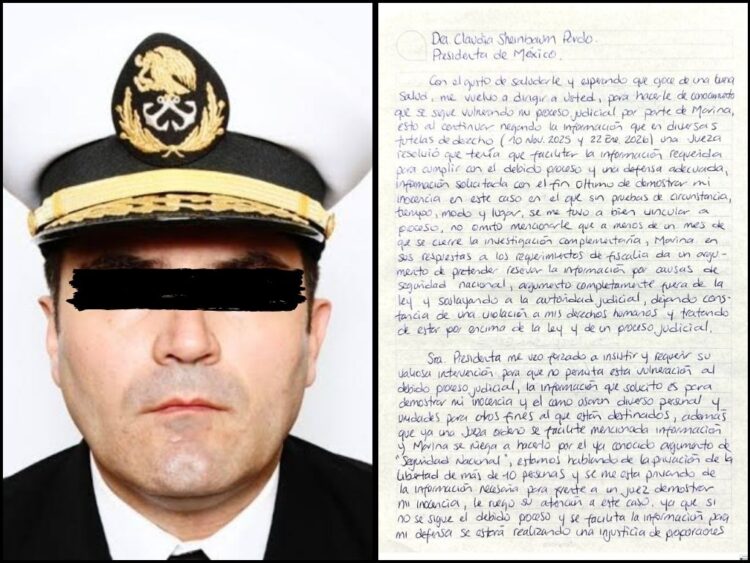 Dra. Claudia Sheinbaum Pardo.
Presidenta de México.
Con el gusto de saludarle y esperando que goce de una buena
salud, me vuelvo a dirigir a usted, para hacerle de conocimiento
que se sigue vulnerando mi proceso judicial por parte de Marina,
esto al continuar negando la información que en diversas
tutelas de derecho (10 Nov. 2025 y 22 Ene. 2026) una Jueza
resolvió que tenía que facilitar la información requerida
para cumplir con el debido proceso y una defensa adecuada,
información solicitada con el fin último de demostrar mi
inocencia en este caso en el que sin pruebas de circunstancia,
tiempo, modo y lugar, se me tuvo a bien vincular a
proceso, no omito mencionarle que a menos de un mes de
que se cierre la investigación complementaria, Marina en
sus respuestas a los requerimientos de fiscalía da un argu-
mento de pretender reservar la información por causas de
seguridad nacional, argumento completamente fuera de la
ley y soslayando a la autoridad judicial, dejando cons-
tancia de una violación a mis derechos humanos y tratando
de estar por encima de la ley y de un proceso judicial.
Sra. Presidenta me veo forzado a insistir y requerir su
valiosa intervención para que no permita esta vulneración al
debido proceso judicial, la información que solicito es para
demostrar mi inocencia y el como usaron diverso personal y
unidades para otros fines al que están destinados, además
que ya una Jueza ordeno se facilite mencionada información
y Marina se niega a hacerlo por el ya conocido argumento de
"Seguridad Nacional", estamos hablando de la privación de la
libertad de más de 10 personas y se me esta privando de
la información necesaria para frente a un juez demostrar
mi inocencia, le ruego su atención a este caso, ya que si
no se sigue el debido proceso y se facilita la información para
mi defensa se estará realizando una injusticia de proporciones